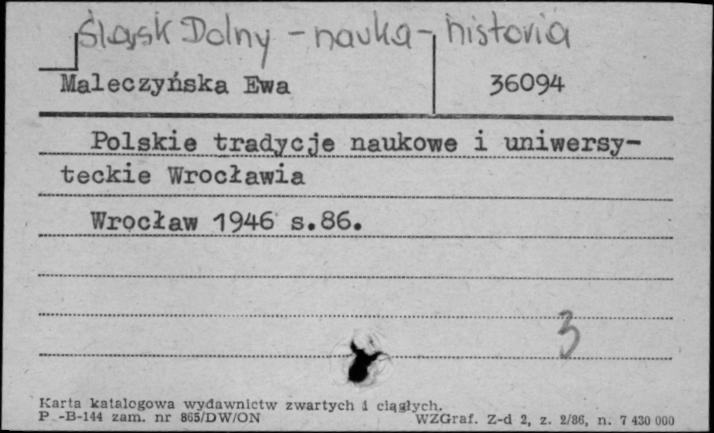 Śląsk Dolny - nauka - historia
Maleczyńska Ewa 36094
Polskie tradycje naukowe i uniwersy-
teckie Wrocławia
Wrocław 1946 s.86.
3
Karta katalogowa wydawnictw zwartych i ciągłych.
P -B-144 zam. nr 865/DW/ON WZGraf. Z-d 2, z. 2/86, n. 7 430 000